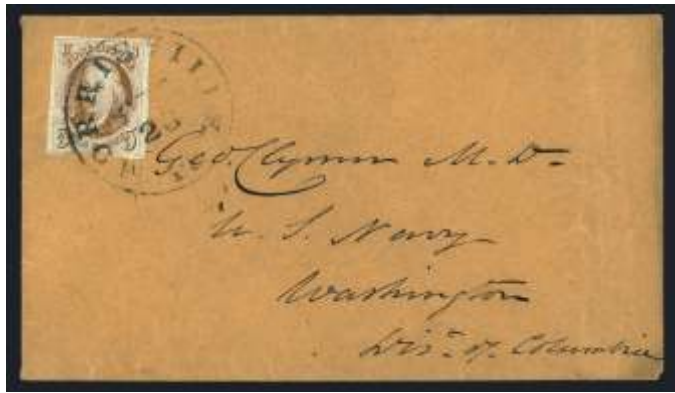 Geo. Clymer M. D.
U. S. Navy
Washington
Dist. of Columbia